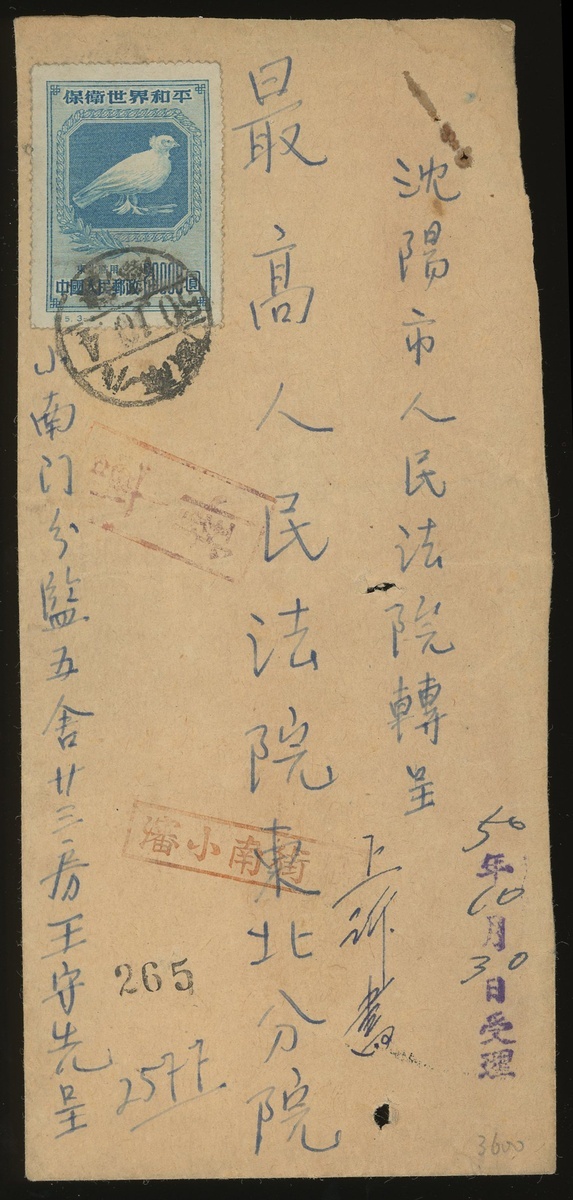 沈陽市人民法院轉呈
上訴書
50年10月30日受理
最高人民法院東北分院
保衛世界和平
中國人民郵政
圓
50.10.4
小南门分監五舍廿三房王守先呈
瀋小南街
265
2577
3600